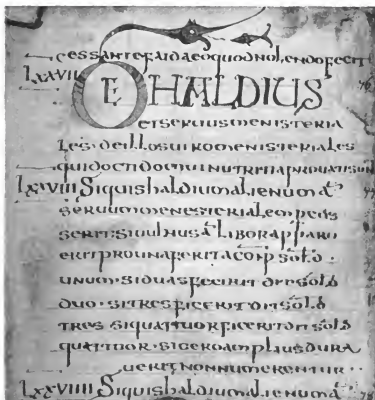 cessante faida eo quod nolendo fecit
LXXVII DE HALDIUS
et seruus menisteria
les. de illos uiro menisteriales
qui docti domui nutriti aprouati sun
LXXVIII Siquis haldium alienum a
seruum menesterialem percus
serit si uulnus a libor apparu
erit pro una ferita comp sold
unum si duas fecerit sold
duo. si tres fecerit sold
tres si quattuor fecerit sold
quattuor. si uero amplius dura
uerit non numerentur
LXXVIIII Siquis haldium alienum a